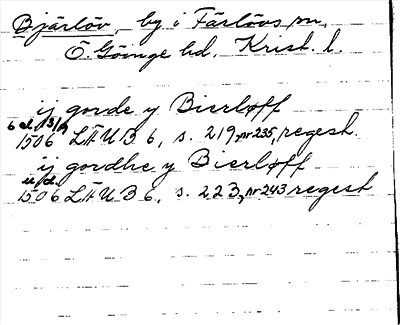 Bjärlöv, by i Färlövs sn,
Ö. Göinge hd, Krist. l.
ij gorde y Bierløff
6 el. 13/9
1506 LÄUB 6, s. 219, nr 235, regest.
ij gordhe y Bierløff
u. d.
1506 LÄUB 6, s. 223, nr 243 regest